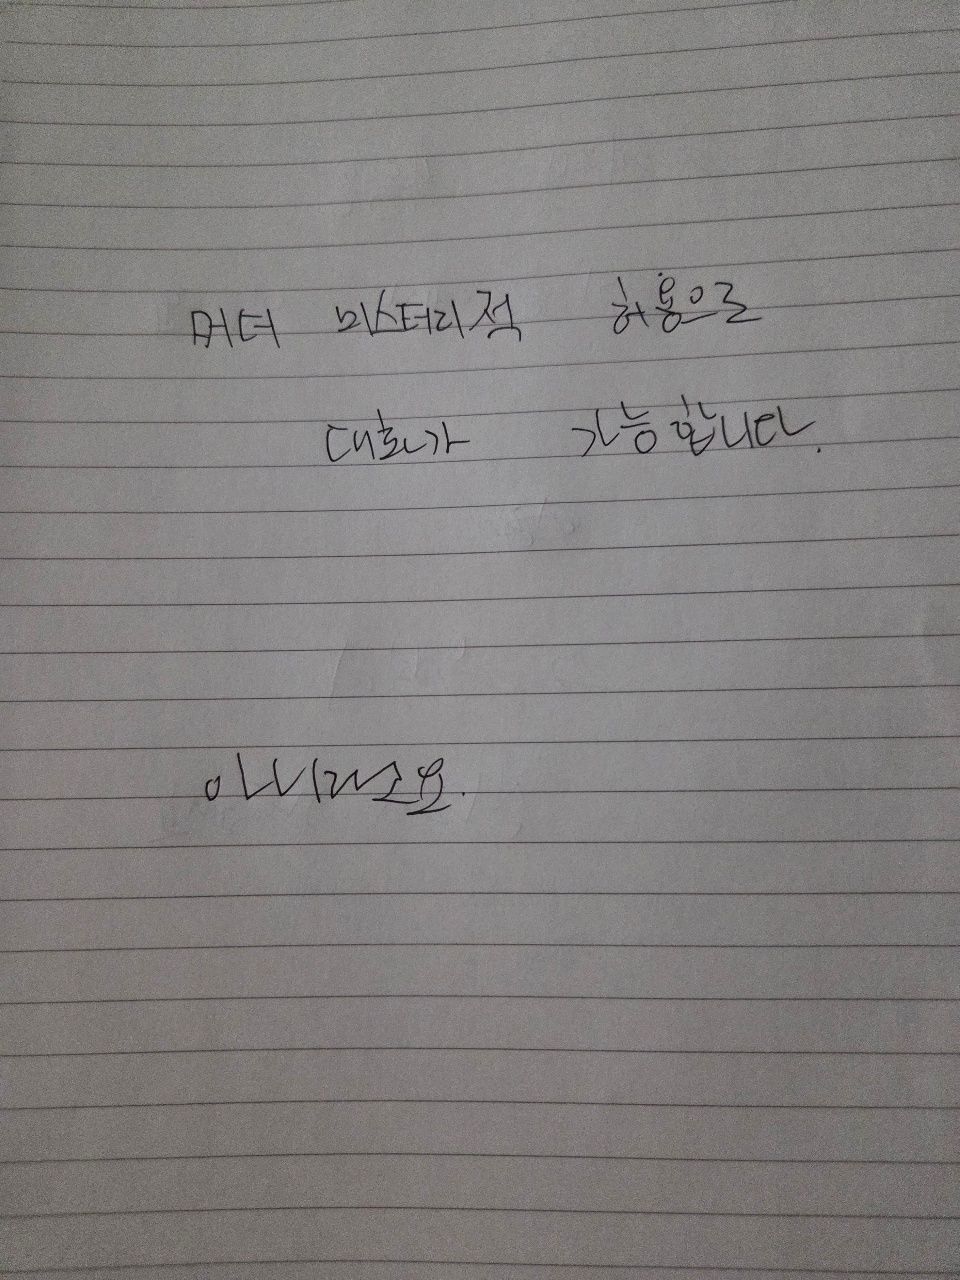 머더 미스터리적 허용으로
대화가 가능합니다.
아니라소요.